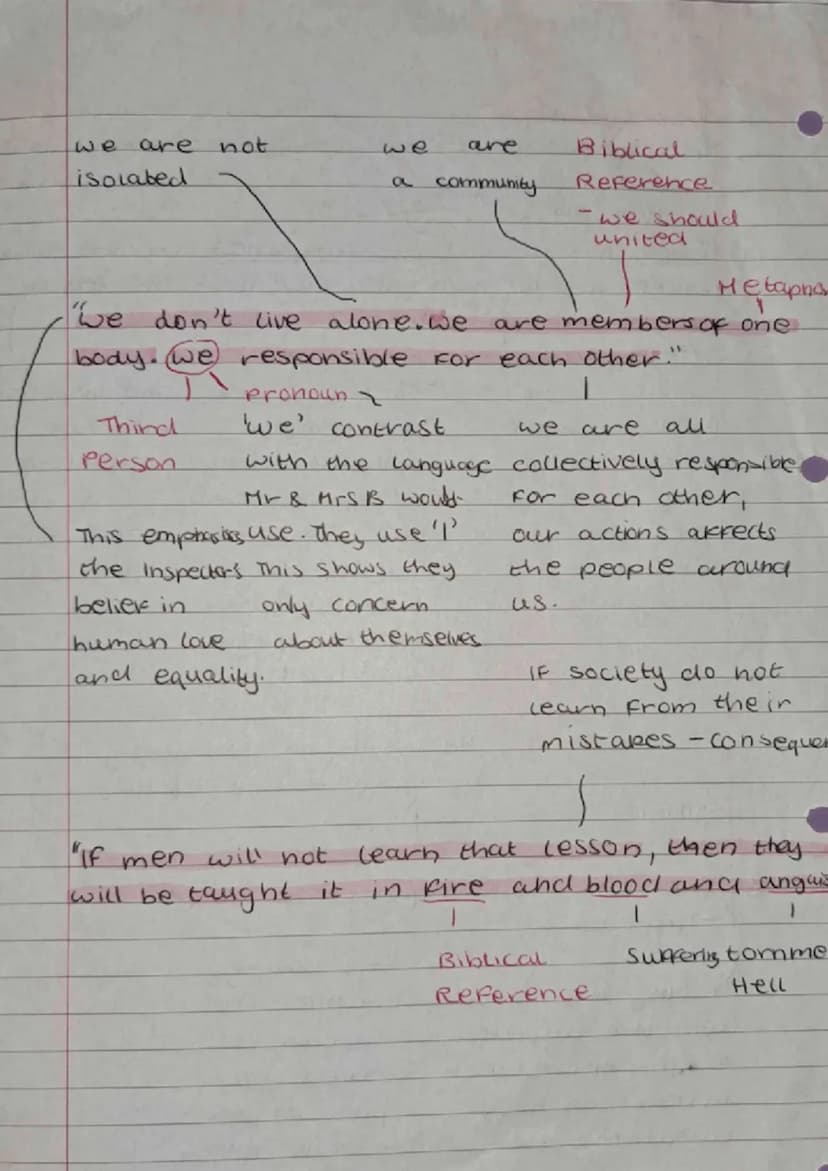 we are not
isolated
we are
a community
Biblical
Reference
- we should
united
Metapho
"We don't live alone. we are members of one
body. we responsible for each other."
pronoun
Third
Person
'we' contrast
with the language
Mr & Mrs B would
use. They use 'I'
This shows they
only concern
about themselves
we are all
collectively responsible
for each other,
our actions affects
the people around
us.
This emphasises
the Inspectors
belief in
human love
and equality.
If society do not
learn from their
mistakes - consequen
"If men will not learn that lesson, then they
will be taught it in fire and blood and anguis
Biblical
Reference
Suffering
tormme
Hell